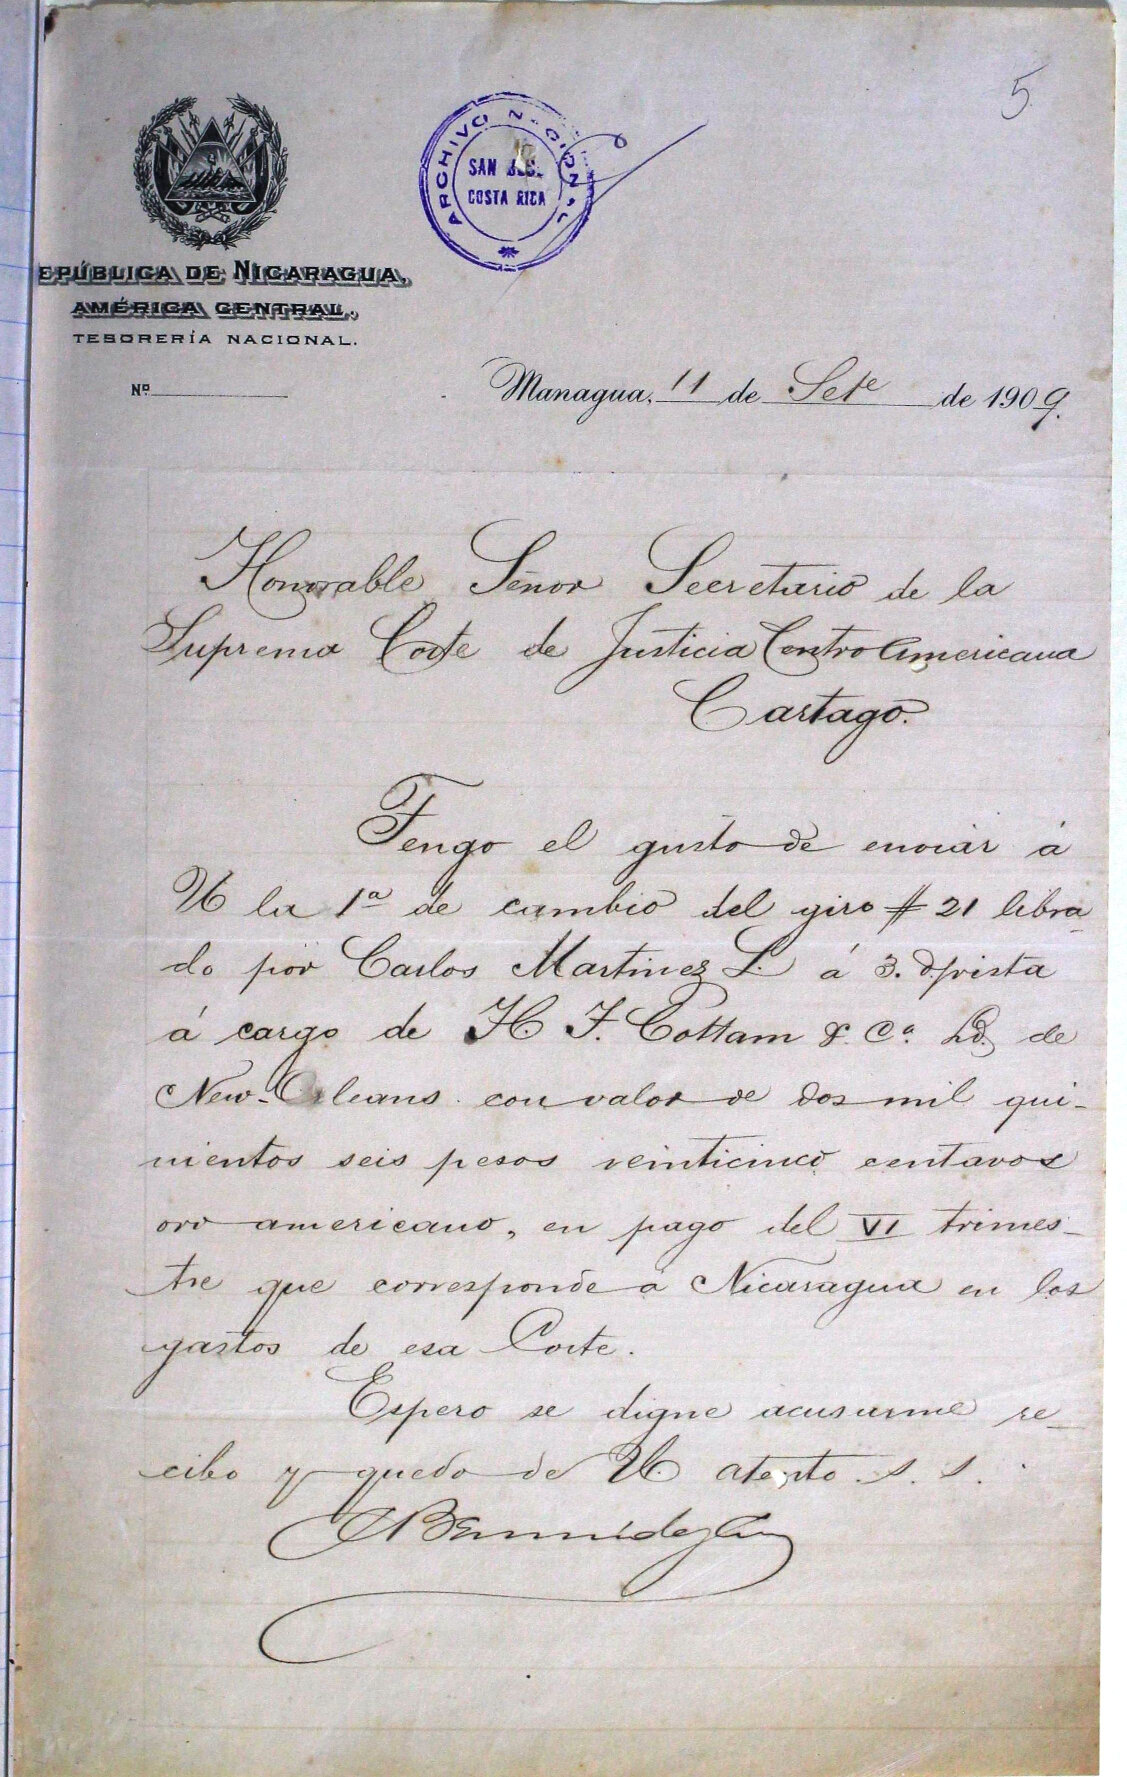 5
ARCHIVO NACIONAL
SAN JOSE
COSTA RICA
REPÚBLICA DE NICARAGUA,
AMÉRICA CENTRAL.
TESORERÍA NACIONAL.
Nº
Managua, 11 de Sete de 1909.
Honorable Señor Secretario de la
Suprema Corte de Justicia Centro Americana
Cartago.
Tengo el gusto de enviar á
U la 1ª de cambio del giro # 21 libra-
do por Carlos Martinez L. á 3. d/vista
á cargo de H. F. Cottam & Cª Ld. de
New-Orleans con valor de dos mil qui-
nientos seis pesos veinticinco centavos
oro americano, en pago del VI trimes-
tre que corresponde á Nicaragua en los
gastos de esa Corte.
Espero se digne acusarme re-
cibo y quedo de U. atento s. s.
Bermúdez